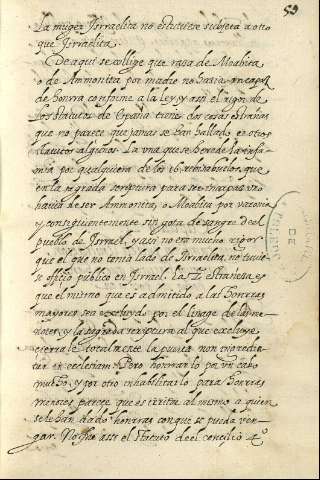 59
la muger Isrraelita no estuviese subjeta a otro
que Isrraelita.
De aqui se collige que rasa de Moabita
o de Ammonita por madre no hasia incapaz
de honrra conforme a la ley y assi el rigor de
los statutos de España tiene dos cosas estrañas
que no parece que jamas se han hallado en otros
statutos algunos. La una que se herede la infa-
mia por qualquiera de los 16 rebisabuelos, que
en la sagrada scriptura para ser incapaz uno
havia de ser Ammonita, o Moabita por varonia
y consiguientemente sin gota de sangre de el
pueblo de Isrrael, y asi no era mucho rigor
que el que no tenia lado de Isrraelita, no tuvie-
se officio publico en Isrrael. La 2ª estrañesa es
que el mismo que es admitido a las honrras
mayores sea excluydo por el linage de las me-
nores, y la sagrada scriptura al que excluye
cierra le totalmente la puerta non ingredie-
tur in ecclesiam. Pero honrrarlo por un cabo
mucho, y por otro inhabilitarlo para honrras
menores parece que es irritar al mismo a quien
se le han dado honrras con que se pueda ven-
gar. No fue assi el statuto de el concilio 4º